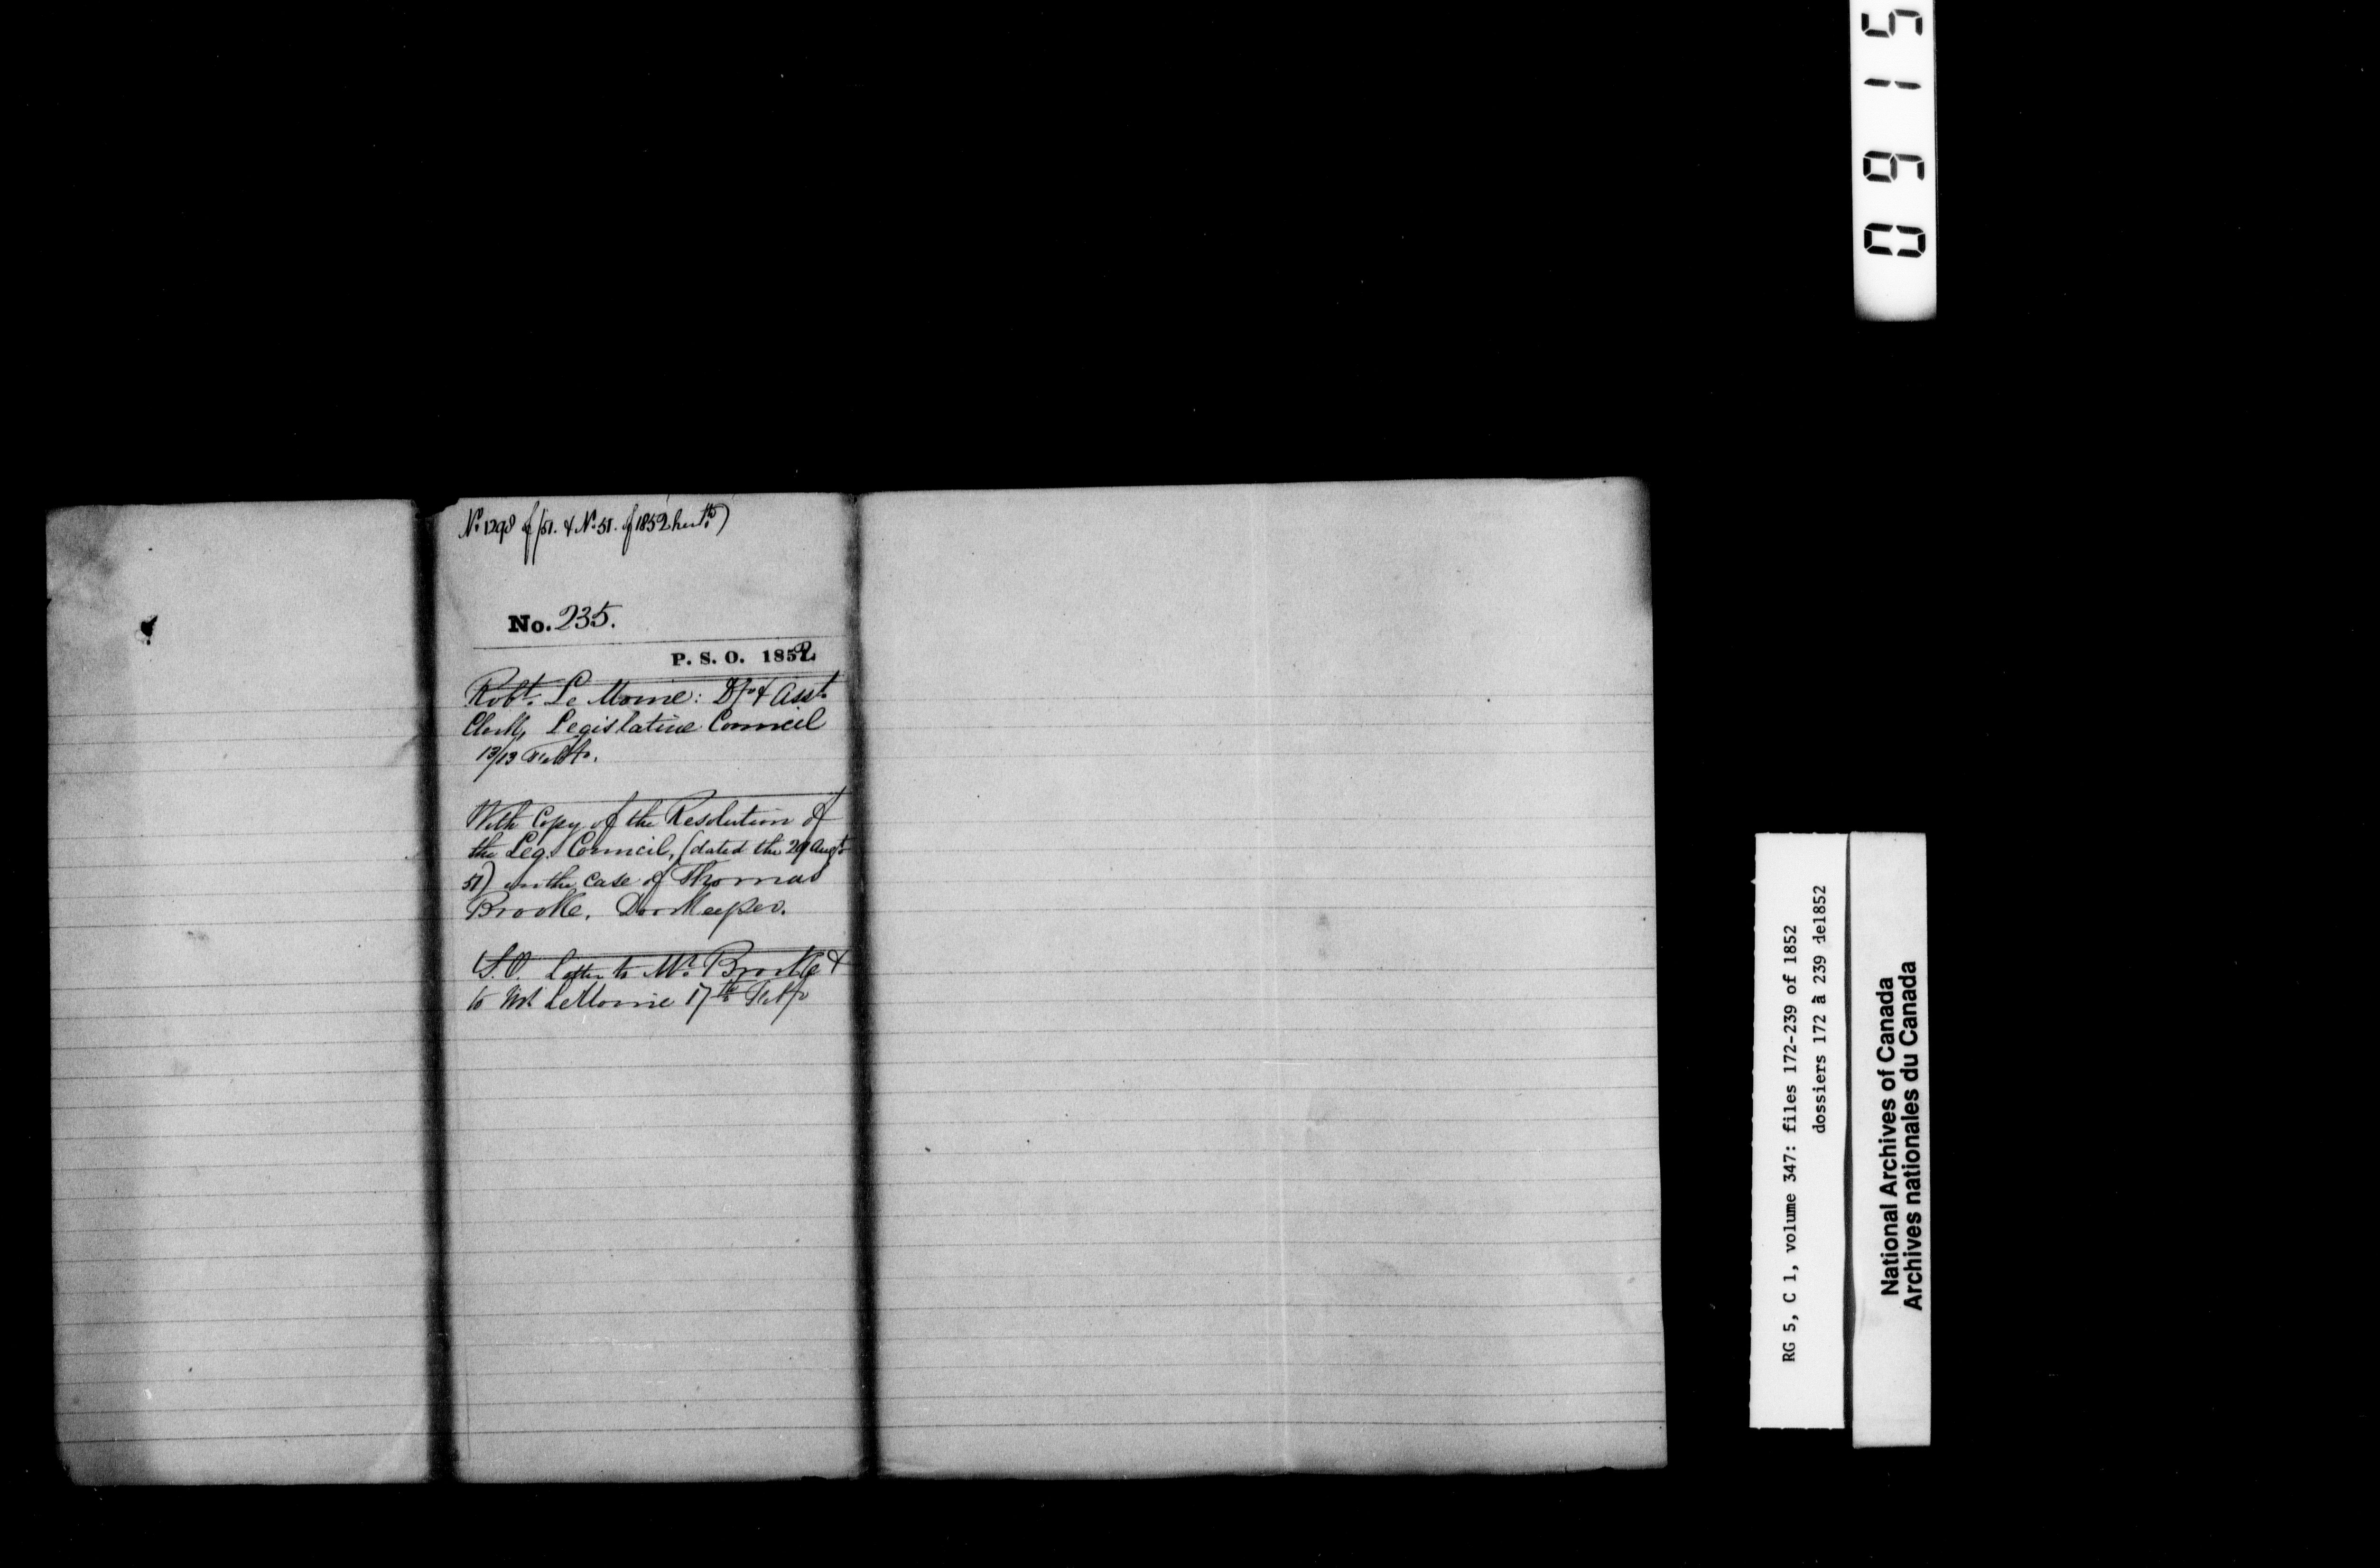 No. 1298 of /51. & No. 51. of 1852 herewth)
No. 235.
P. S. O. 1852
Robt. Le Moine: Dy. & Asst.
Clerk, Legislative Council
13/13 Feby.
With Copy of the Resolution of
the Leg. Council, (dated the 29 Augt.
51) on the case of Thomas
Brooke, Doorkeeper.
L.O. Letter to Mr. Brooke &
to Mr. LeMoine 17th Feby
0915
RG 5, C 1, volume 347: files 172-239 of 1852
dossiers 172 à 239 de1852
National Archives of Canada
Archives nationales du Canada